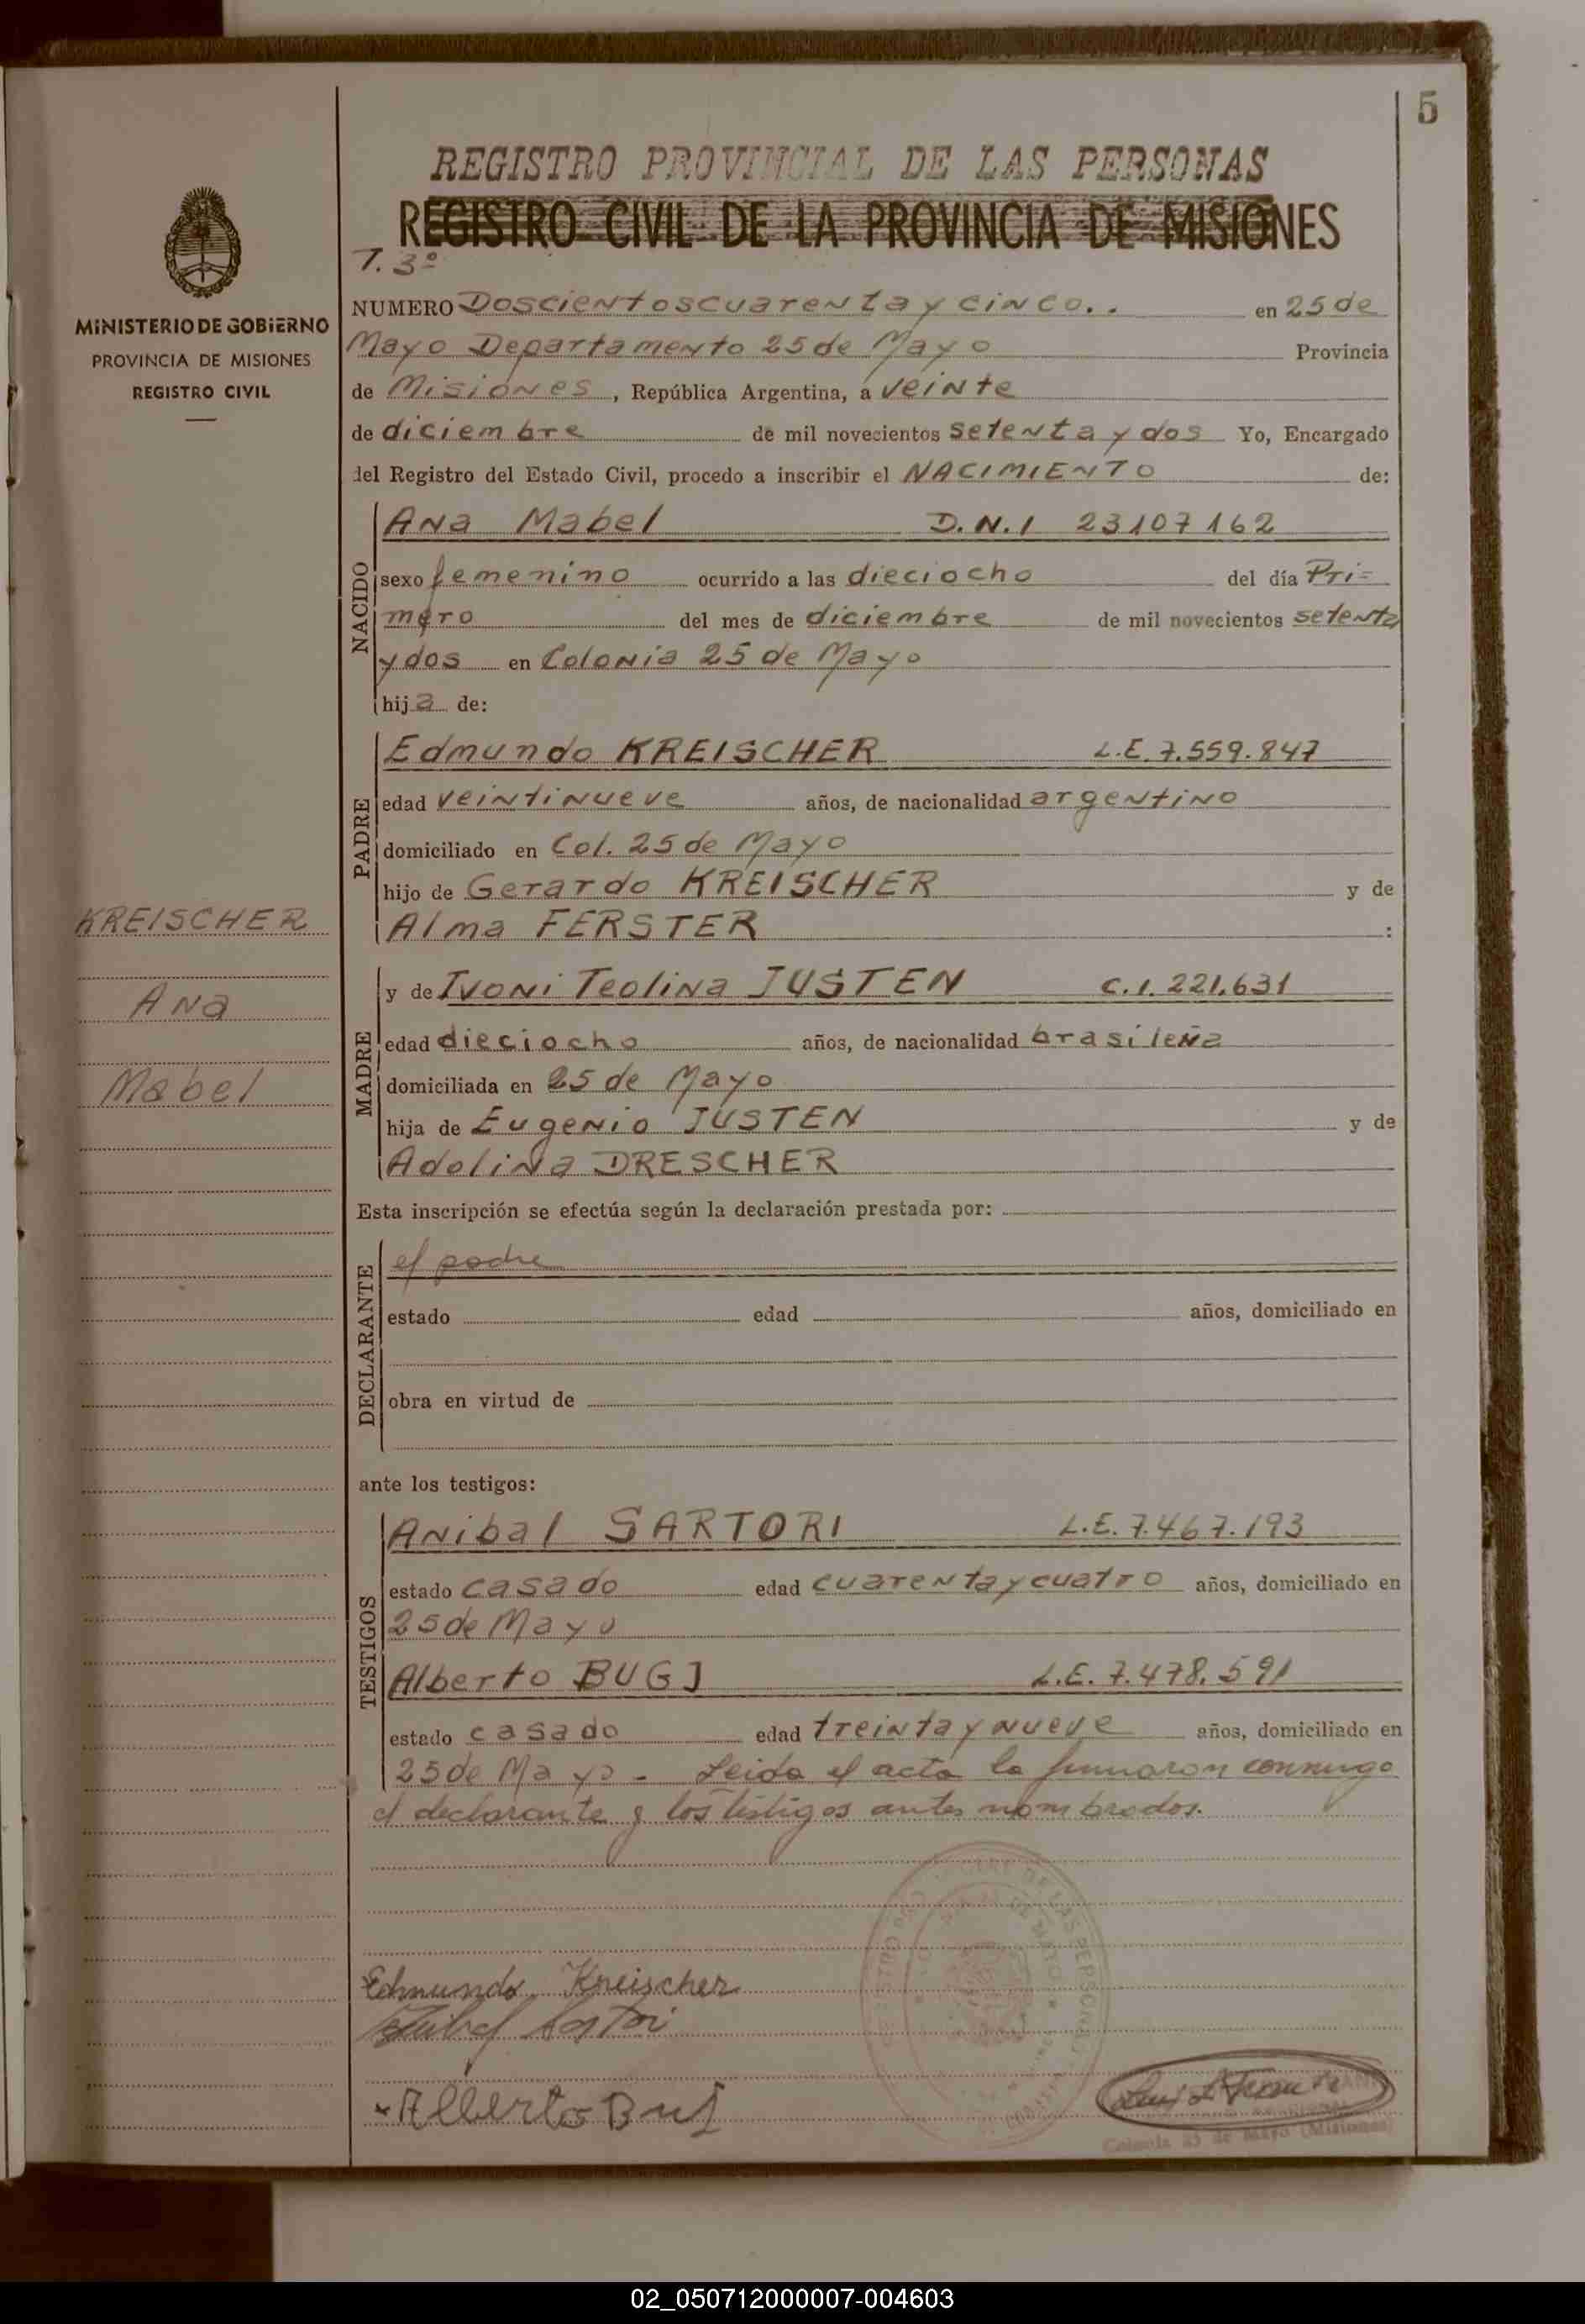 5
REGISTRO PROVINCIAL DE LAS PERSONAS
REGISTRO CIVIL DE LA PROVINCIA DE MISIONES
T. 3º
MINISTERIO DE GOBIERNO
PROVINCIA DE MISIONES
REGISTRO CIVIL
KREISCHER
Ana
Mabel
NUMERO Doscientos cuarenta y cinco.. en 25 de
Mayo Departamento 25 de Mayo Provincia
de Misiones, República Argentina, a veinte
de diciembre de mil novecientos setenta y dos Yo, Encargado
del Registro del Estado Civil, procedo a inscribir el NACIMIENTO de:
NACIDO
Ana Mabel D.N.I 23107162
sexo femenino ocurrido a las dieciocho del día Pri=
mero del mes de diciembre de mil novecientos setenta
y dos en Colonia 25 de Mayo
hija de:
PADRE
Edmundo KREISCHER L.E. 7.559.847
edad veintinueve años, de nacionalidad argentino
domiciliado en Col. 25 de Mayo
hijo de Gerardo KREISCHER y de
Alma FERSTER :
MADRE
y de Ivoni Teolina JUSTEN C.I. 221.631
edad dieciocho años, de nacionalidad brasileña
domiciliada en 25 de Mayo
hija de Eugenio JUSTEN y de
Adolina DRESCHER
Esta inscripción se efectúa según la declaración prestada por:
DECLARANTE
el padre
estado edad años, domiciliado en
obra en virtud de
ante los testigos:
TESTIGOS
Anibal SARTORI L.E. 7.467.193
estado casado edad cuarenta y cuatro años, domiciliado en
25 de Mayo
Alberto BUGJ L.E. 7.478.591
estado casado edad treinta y nueve años, domiciliado en
25 de Mayo - Leida el acta la firmaron conmigo
el declarante y los testigos antes nombrados.
Edmundo Kreischer
Anibal Sartori
Alberto
Colonia 25 de Mayo (Misiones)
02_050712000007-004603